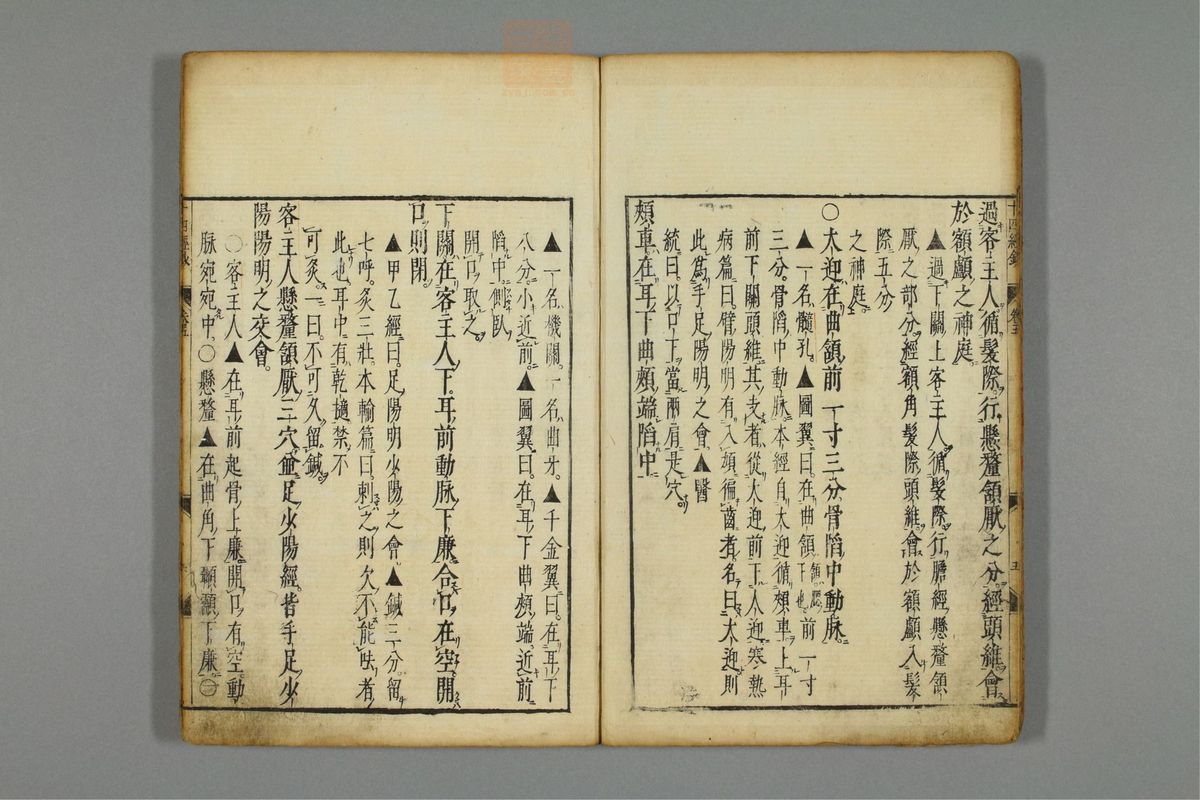 過客主人循髮際行懸釐頷厭之分經頭維會
於額顱之神庭
▲過下關上客主人循髮際行膽經懸釐頷
厭之部分經額角髮際頭維會於額顱入髮
際五分
之神庭
○大迎在曲頷前一寸三分骨陷中動脉
▲一名髓孔▲圖翼曰在曲頷前一寸
三分骨陷中動脉本經自大迎循頰車上耳
前下關頭維其支者從大迎前下人迎寒熱
病篇曰臂陽明有入頄徧齒者名曰大迎則
此爲手足陽明之會▲醫
統曰以口下當兩肩是穴
頰車在耳下曲頰端陷中
▲一名機關一名曲牙▲千金翼曰在耳下
八分小近前▲圖翼曰在耳下曲頰端近前
陷中側臥
開口取之
下關在客主人下耳前動脉下廉合口在空開
口則閉
▲甲乙經曰足陽明少陽之會▲鍼三分留
七呼灸三壯本輸篇曰刺之則欠不能呿者
此也耳中有乾擿禁不
可灸一曰不可久留鍼
客主人懸釐頷厭三穴並足少陽經皆手足少
陽陽明之交會
○客主人▲在耳前起骨上廉開口有空動
脉宛宛中○懸釐▲在曲角下顳顬下廉○
十四經
卷五
五